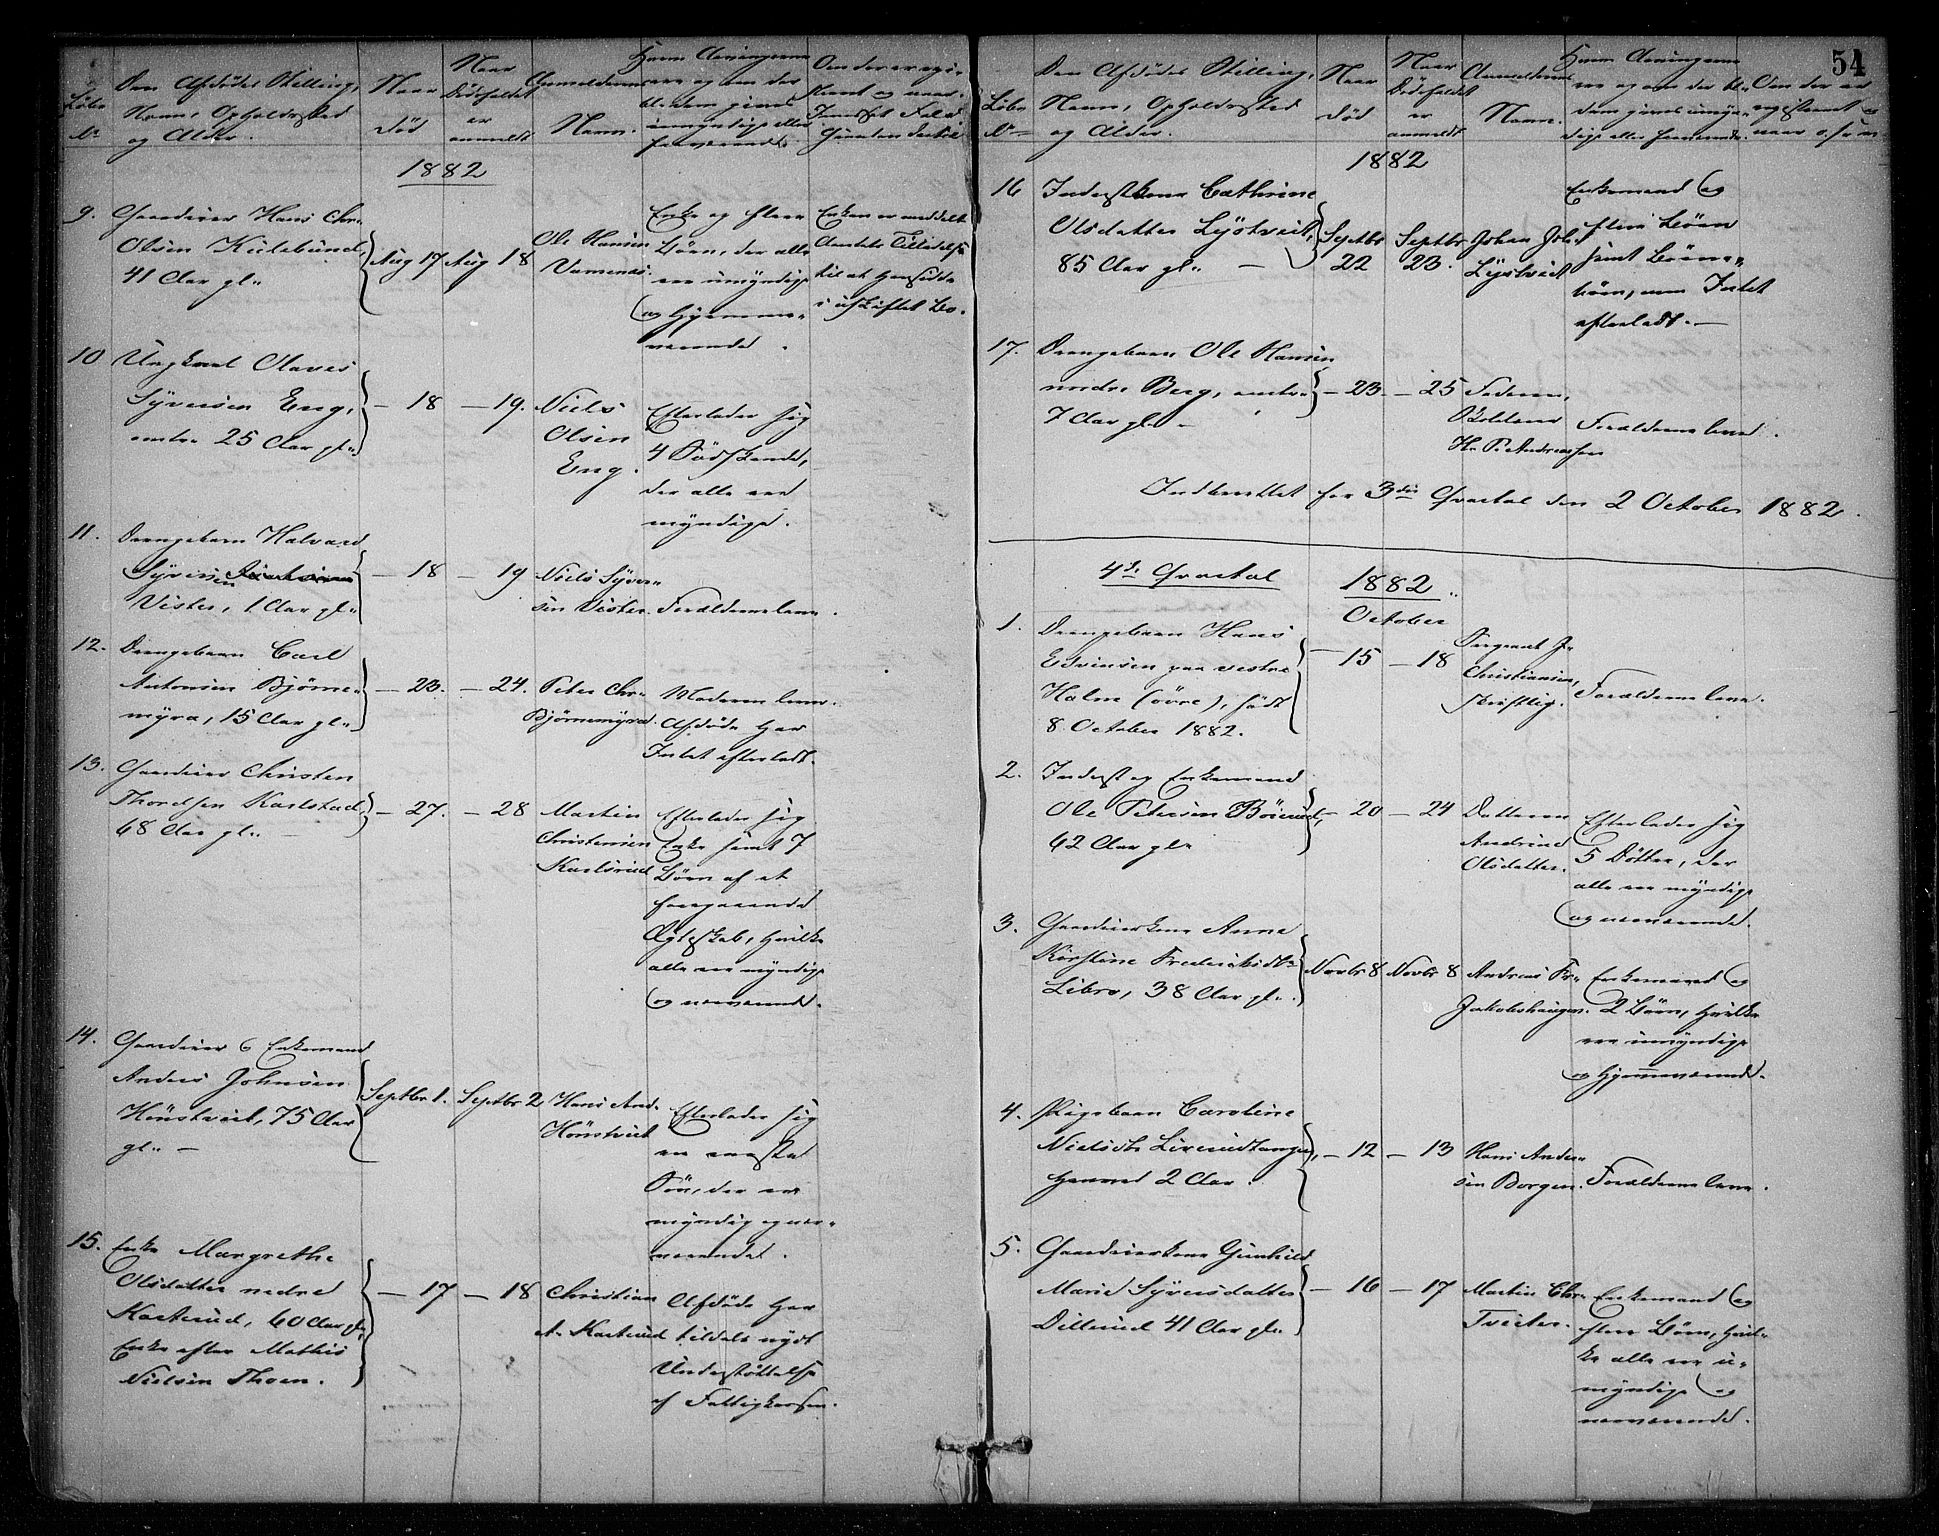 Löbe
No
Den Afdödes Stilling,
Navn, Opholdssted
og Alder.
Naar
död
Naar
Dödsfaldet
er
anmeldt
Anmelderens
Navn.
Hvem Arvingerne
ere og om der
blandt dem gives
umyndige eller
fraværende
Om der er
1882
9.
Gaardeier Hans Chr.
Olsen Kulebund,
41 Aar gl.
Aug 17
Aug 18
Ole Hansen
Enke og flere
Børn, der alle
ere umyndige
og hjemme-
værende.
Enken er meddelt
Amtets Tilladelse
til at hensidde
i uskiftet Bo.
10
Ungkarl Olaves
Syversen Eng,
omtr. 25 Aar gl.
— 18
— 19.
Niels
Olsen
Eng.
Efterlader sig
4 Södskende,
der alle ere
myndige.
11.
Drengebarn Halvard
Syversen
Vister, 1 Aar gl.
— 18
— 19
Niels Syver-
sen Vister.
Forældrene leve.
12.
Drengebarn Carl
Antonsen Bjørne-
myra, 15 Aar gl.
— 23.
— 24.
Peter Chr.
Bjørnemyra.
Moderen lever.
Afdöde har
Intet efterladt.
13.
Gaardeier Christen
Thordsen Karlsrud,
68 Aar gl. —
— 27.
— 28
Martin
Christensen
Karlsrud
Efterlader sig
Enke samt 7
Børn af et
foregaaende
Ægteskab, hvilke
alle ere myndige
og nærværende.
14.
Gaardeier & Enkemand
Anders Johnsen
Hönstveit, 75 Aar
gl. —
Septbr 1.
Septbr 2
Hans And.
Hönstveit
Efterlader sig
en eneste
Sön, der er
myndig og nær-
værende.
15.
Enke Margrethe
Olsdatter nedre
Kasterud, 60 Aar gl.
Enke efter Mathis
Nielsen Thoen.
— 17
— 18
Christian
A. Kasterud
Afdöde har
tildels nydt
Understöttelse
af Fattigkassen.
54
Löbe
No
Den Afdödes Stilling,
Navn, Opholdssted
og Alder.
Naar
död
Naar
Dödsfaldet
er
anmeldt
Anmelderens
Navn.
Hvem Arvingerne
ere og om der bl.
dem gives umyn-
dige eller fraværende.
Om der er
registreret og
naar o.s.v.
1882
16
Inderstkone Cathrine
Olsdatter Lystveit,
85 Aar gl. —
Septbr
22
Septbr
23.
Johan Joh.
Lystveit
Enkemand og
flere Børn
samt Børne-
børn, men Intet
efterladt. —
17.
Drengebarn Ole Hansen
nedre Berg, omtr.
7 Aar gl. —
— 23.
— 25
Faderen,
H. P. Andreassen
Forældrene leve.
Indberettet for 3die Qvartal den 2 October 1882.
4de Qvartal
1882.
October
1.
Drengebarn Hans
Edvinsen paa vestre
Holm (övre), födt
8 October 1882.
— 15
— 18
Sergeant J.
Christiansen,
skriftlig.
Forældrene leve.
2.
Inderst og Enkemand
Ole Petersen Böierud,
62 Aar gl.
— 20
— 24
Datteren
Andrine
Olsdatter.
Efterlader sig
5 Døttre, der
alle ere myndige
og nærværende.
3.
Gaardeierkone Anne
Kirstine Frederiksdtr
Libro, 38 Aar gl.
Novbr 8
Novbr 8
Andreas Fr.
Jakobshaugen.
Enkemand og
2 Børn, hvilke
ere umyndige
og hjemmeværende.
4.
Pigebarn Caroline
Nielsdtr Liverudtangen,
henved 2 Aar.
— 12
— 13
Hans Ander-
sen Borgen.
Forældrene leve.
5.
Gaardeierkone Gunhild
Marie Syversdatter
Dillerud 41 Aar gl.
— 16
— 17
Martin Chr.
Tveiter.
Enkemand og
flere Børn, hvil-
ke alle ere u-
myndige og
nærværende.